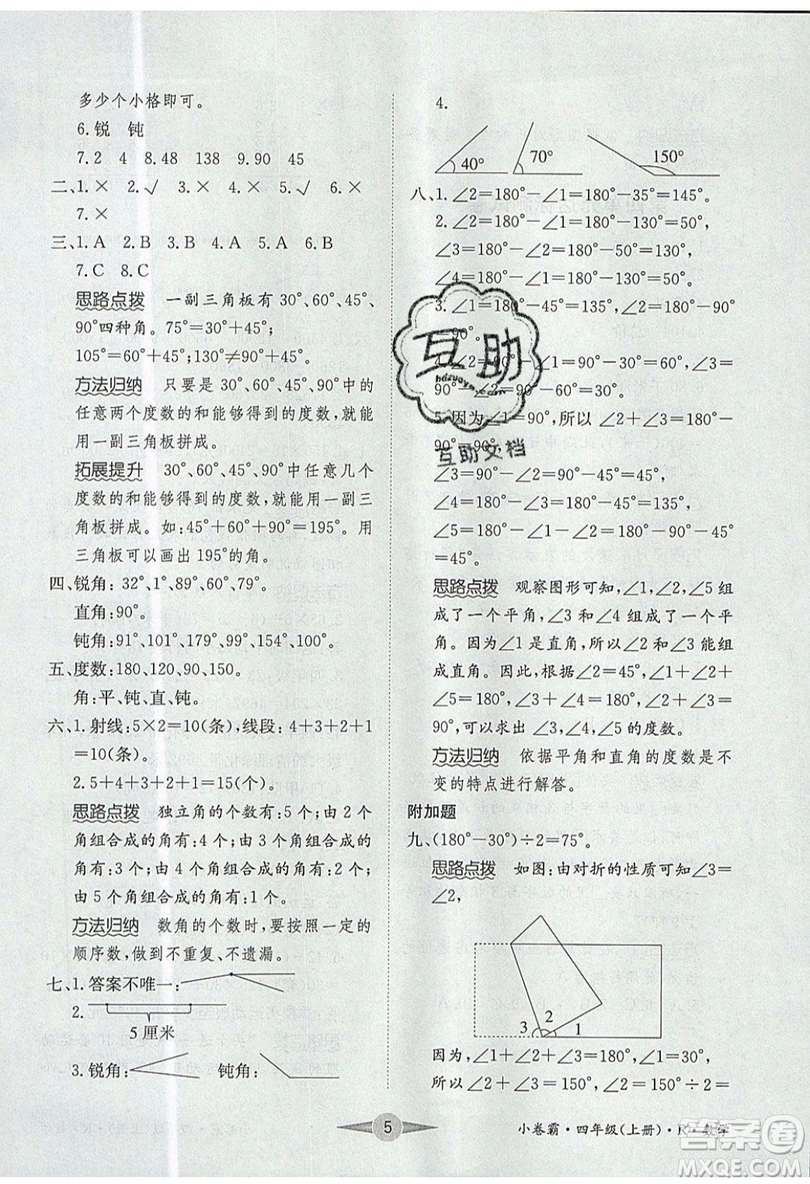 多少个小格即可。
6.锐　钝
7.2　4　8.48　138　9.90　45
二、1.×　2.√　3.×　4.×　5.×　6.√
7.×
三、1.A　2.B　3.B　4.A　5.A　6.B
7.C　8.C
思路点拨　一副三角板有30°、60°、45°、
90°四种角。75°=30°+45°；
105°=60°+45°；130°≠60°+90°。
方法归纳　只要是30°、60°、45°、90°中的
任意两个度数的和能够得到的度数，就能
用一副三角板拼成。
拓展提升　30°、60°、45°、90°中任意几个
度数的和能够得到的度数，能用一副三
角板拼成。如：45°+60°+90°=195°。用
三角板可以画出195°的角。
四、锐角：32°、1°、89°、76°、60°。
直角：90°。
钝角：91°、97°、179°、145°、100°。
五、度数：180、120、90、150。
角：平、钝、直、钝。
六、1.射线：5×2=10(条)，线段：4+3+2+1
=10(条)。
2.5+4+3+2+1=15(个)。
思路点拨　独立角的个数有：5个；由2个
角组合成的角有：4个；由3个角组合成的
角有：3个；由4个角组合成的角有：2个；
由5个角组合成的角有：1个。
方法归纳　数角的个数时，要按照一定的
顺序数，做到不重复、不遗漏。
七、1.答案不唯一：
2.
5厘米
3.锐角：　钝角：
4.
40°　70°　150°
八、1.∠2=180°-∠1=180°-35°=145°。
2.∠2=180°-∠1=180°-130°=50°，
∠3=180°-∠2=180°-50°=130°，
∠4=180°-∠1=180°-130°=50°。
3.∠1=180°-∠2-45°=180°-45°-45°
=90°。
4.∠2=90°-∠1=90°-30°=60°，∠3=
90°-∠2=90°-60°=30°。
5.因为∠1=90°，所以∠2+∠3=180°-
90°=90°。
∠3=90°-∠2=90°-45°=45°，
∠4=90°-∠3=90°-45°=45°，
∠5=180°-∠1-∠2=180°-90°-45°
=45°。
思路点拨　观察图形可知，∠1、∠2、∠5组
成了一个平角，∠3和∠4组成了一个直
角。因为∠1是直角，所以∠3和∠4能组
成一个直角。因此，根据∠1=90°、∠2=
90°，可以求出∠3、∠4、∠5的度数。
方法归纳　依据平角和直角的度数是不
变的特点进行解答。
附加题
九、(180°-30°)÷2=75°。
思路点拨　如图：由对折的性质可知∠3=
∠2，
3　2　1
因为，∠1+∠2+∠3=180°，∠1=30°，
所以∠2+∠3=150°，∠2=150°÷2=
互助
互助文档
5
小卷霸·四年级(上册)·R·数学
答案圈
MXQE.COM